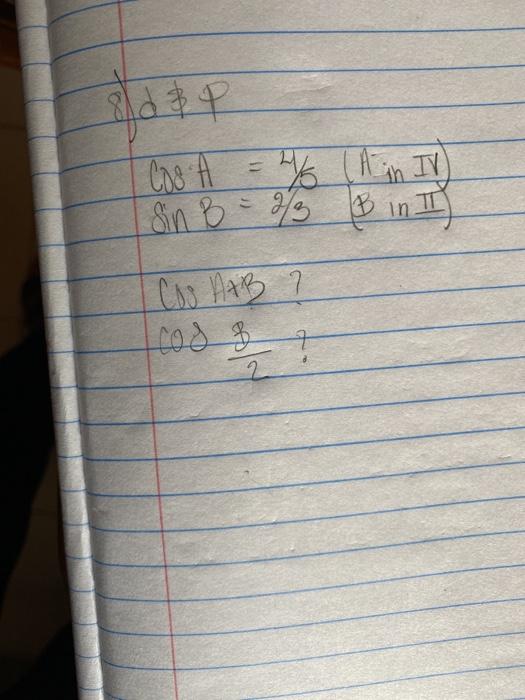 8) d & p
Cos A = 4/5 (A in IV)
Sin B = 2/3 (B in II)
Cos A+B ?
cos B/2 ?